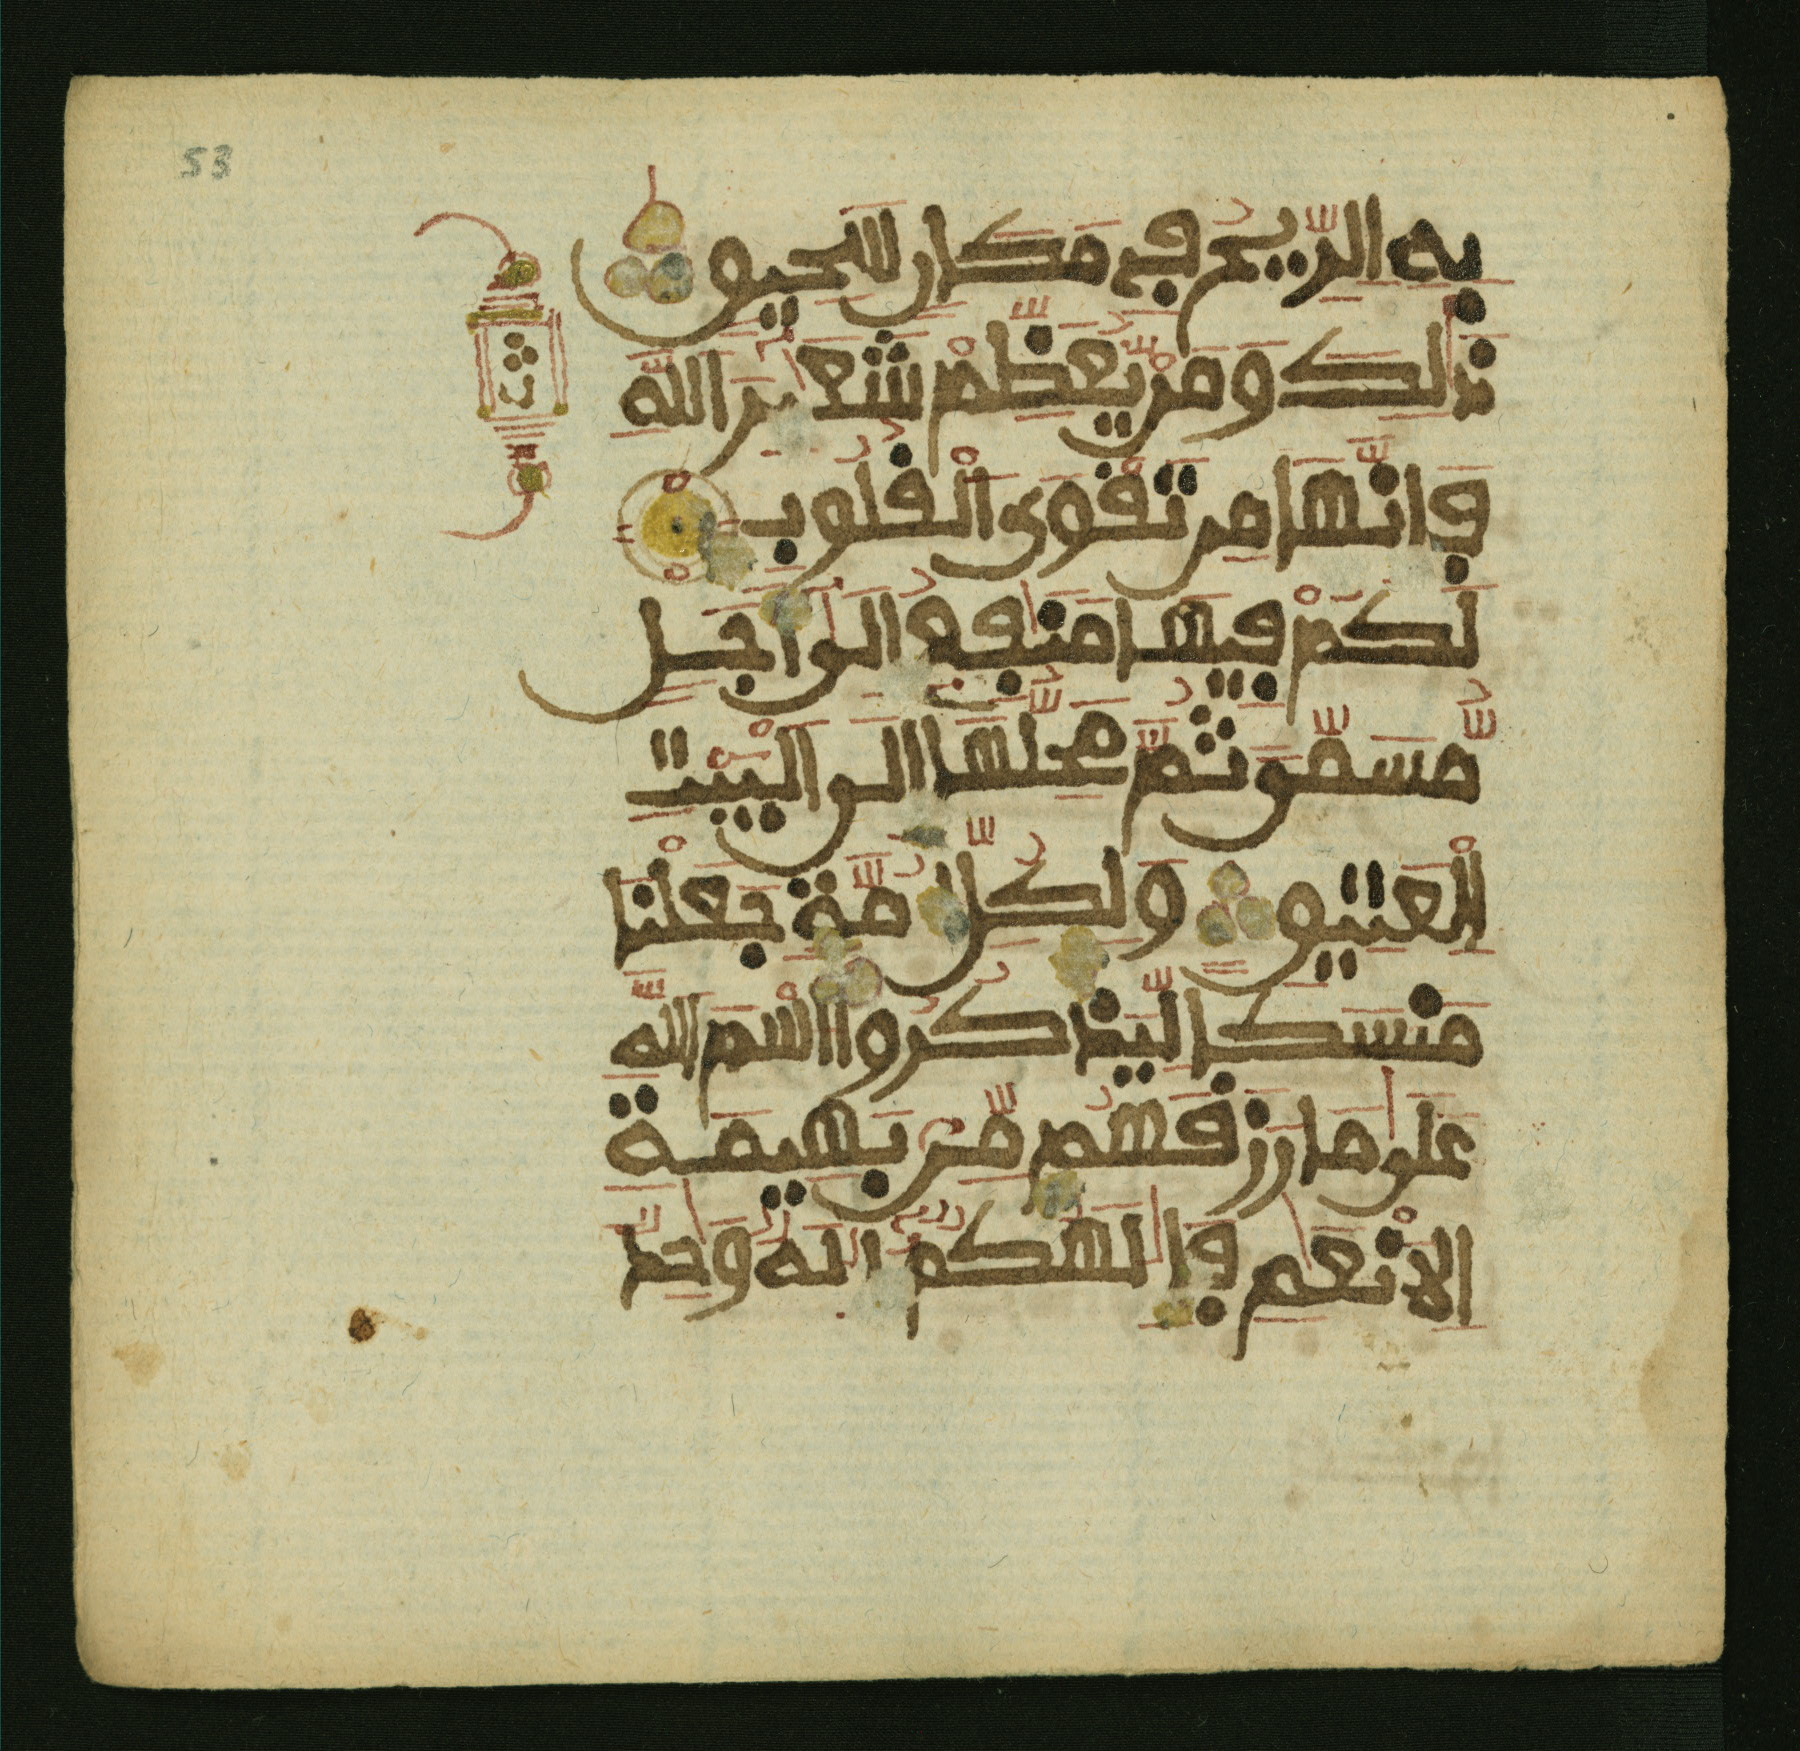 53
به الريح في مكان سحيق
ذلك ومن يعظم شعئر الله
فانها من تقوى القلوب
لكم فيها منفع الى اجل
مسمى ثم محلها الى البيت
العتيق ولكل امة جعلنا
منسكا ليذكروا اسم الله
على ما رزقهم من بهيمة
الانعم فالهكم اله وحد